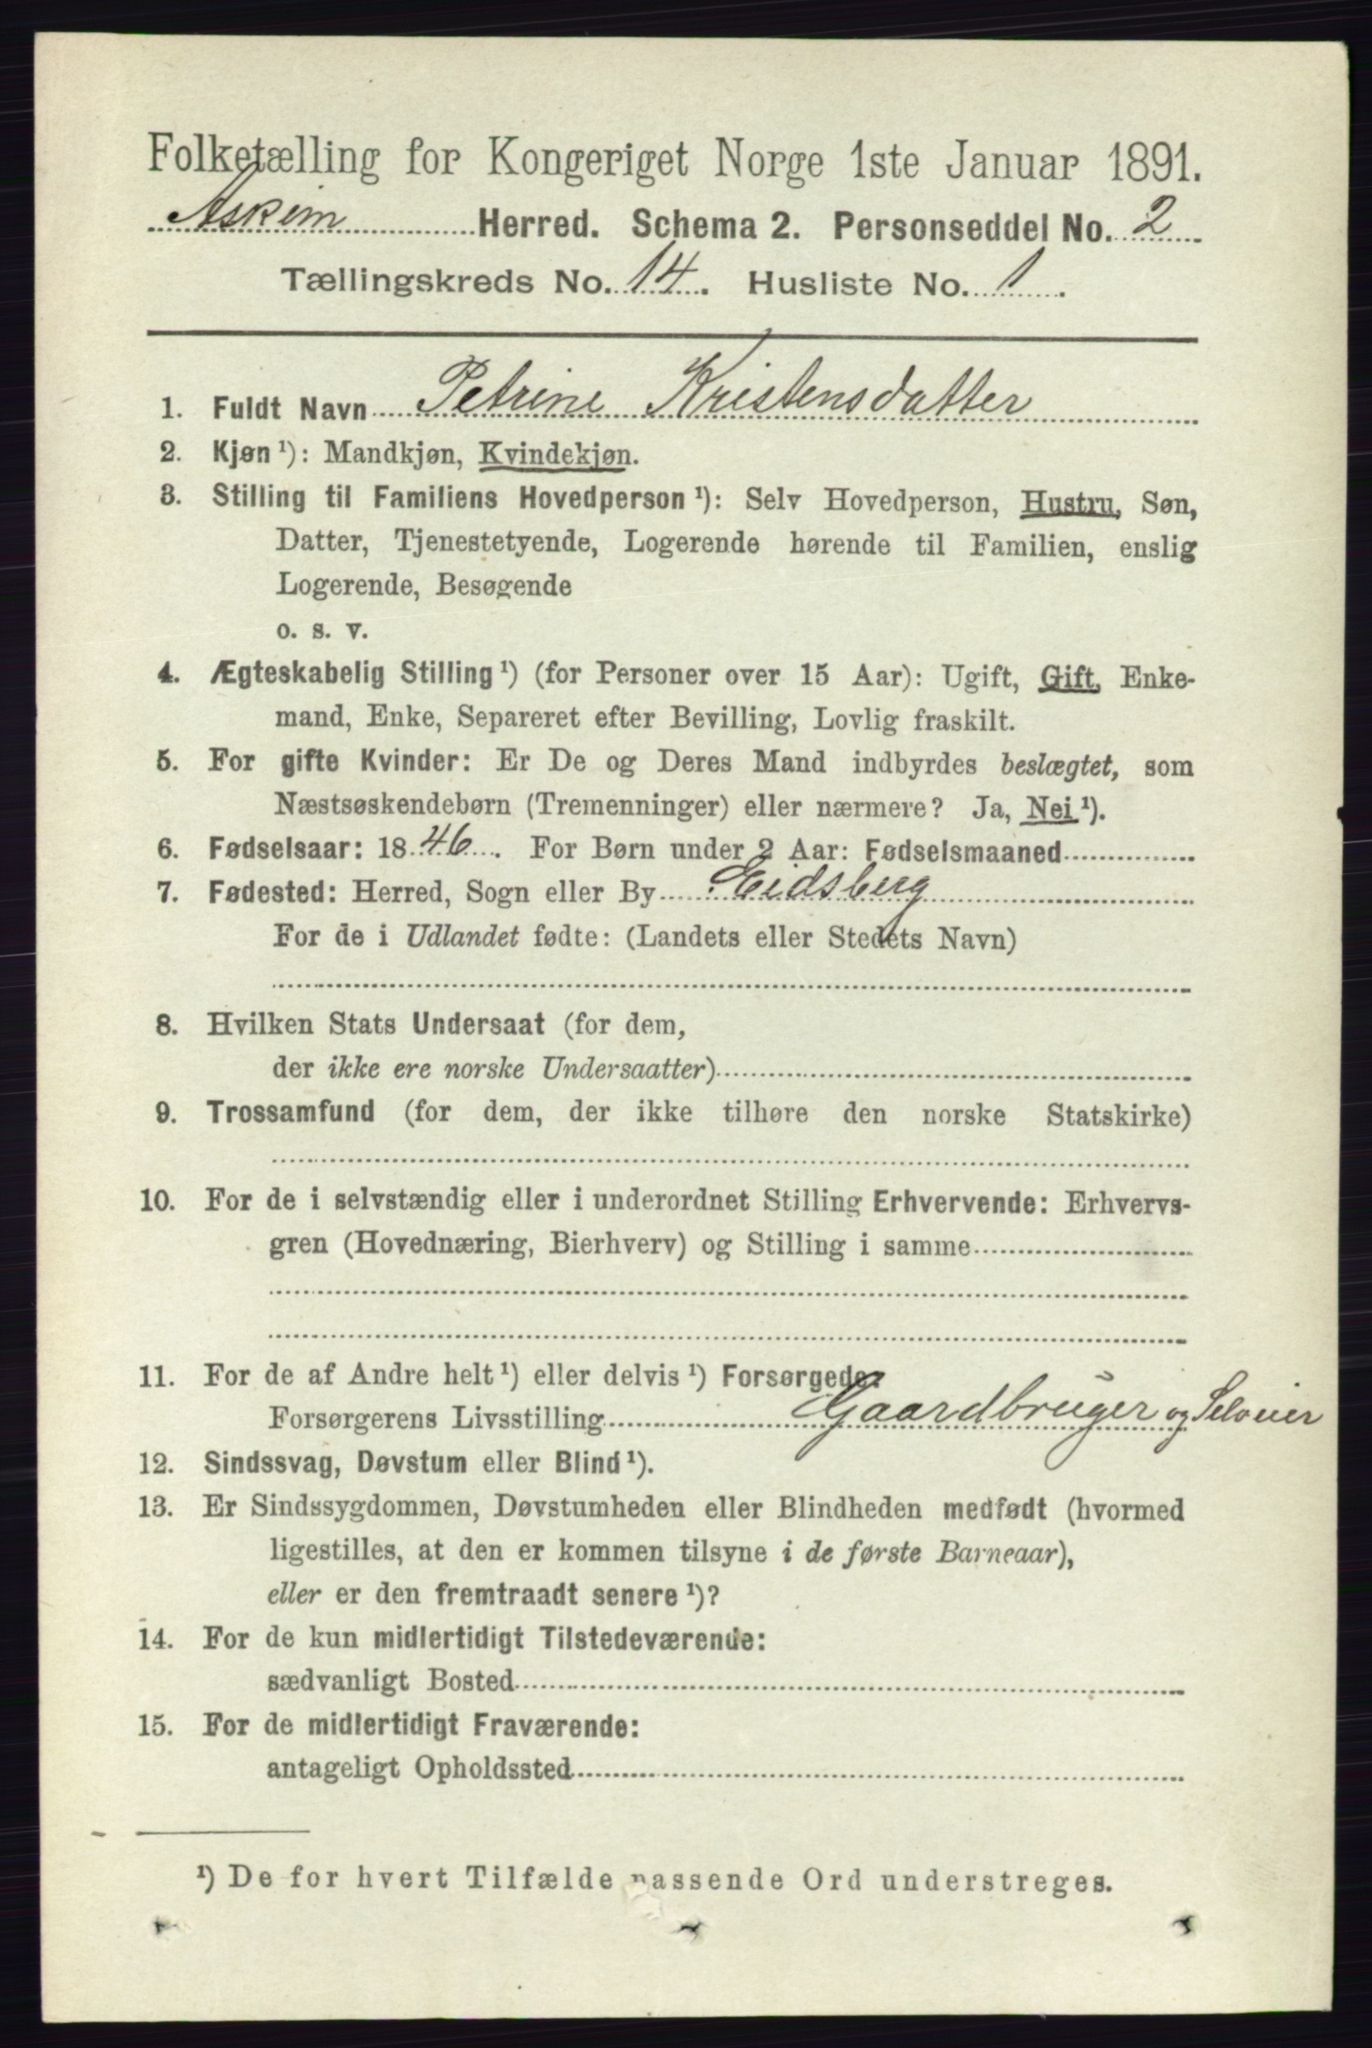 Folketælling for Kongeriget Norge 1ste Januar 1891.
Askim Herred. Schema 2. Personseddel No. 2
Tællingskreds No. 14. Husliste No. 1.
1. Fuldt Navn Petrine Kristensdatter
2. Kjøn ¹): Mandkjøn, Kvindekjøn.
3. Stilling til Familiens Hovedperson ¹): Selv Hovedperson, Hustru, Søn,
Datter, Tjenestetyende, Logerende hørende til Familien, enslig
Logerende, Besøgende
o. s. v.
4. Ægteskabelig Stilling ¹) (for Personer over 15 Aar): Ugift, Gift, Enke-
mand, Enke, Separeret efter Bevilling, Lovlig fraskilt.
5. For gifte Kvinder: Er De og Deres Mand indbyrdes beslægtet, som
Næstsøskendebørn (Tremenninger) eller nærmere? Ja, Nei ¹).
6. Fødselsaar: 1846. For Børn under 2 Aar: Fødselsmaaned
7. Fødested: Herred, Sogn eller By Eidsberg
For de i Udlandet fødte: (Landets eller Stedets Navn)
8. Hvilken Stats Undersaat (for dem,
der ikke ere norske Undersaatter)
9. Trossamfund (for dem, der ikke tilhøre den norske Statskirke)
10. For de i selvstændig eller i underordnet Stilling Erhvervende: Erhvervs-
gren (Hovednæring, Bierhverv) og Stilling i samme
11. For de af Andre helt ¹) eller delvis ¹) Forsørgede:
Forsørgerens Livsstilling Gaardbruger og Selveier
12. Sindssvag, Døvstum eller Blind ¹).
13. Er Sindssygdommen, Døvstumheden eller Blindheden medfødt (hvormed
ligestilles, at den er kommen tilsyne i de første Barneaar),
eller er den fremtraadt senere ¹)?
14. For de kun midlertidigt Tilstedeværende:
sædvanligt Bosted
15. For de midlertidigt Fraværende:
antageligt Opholdssted
¹) De for hvert Tilfælde passende Ord understreges.